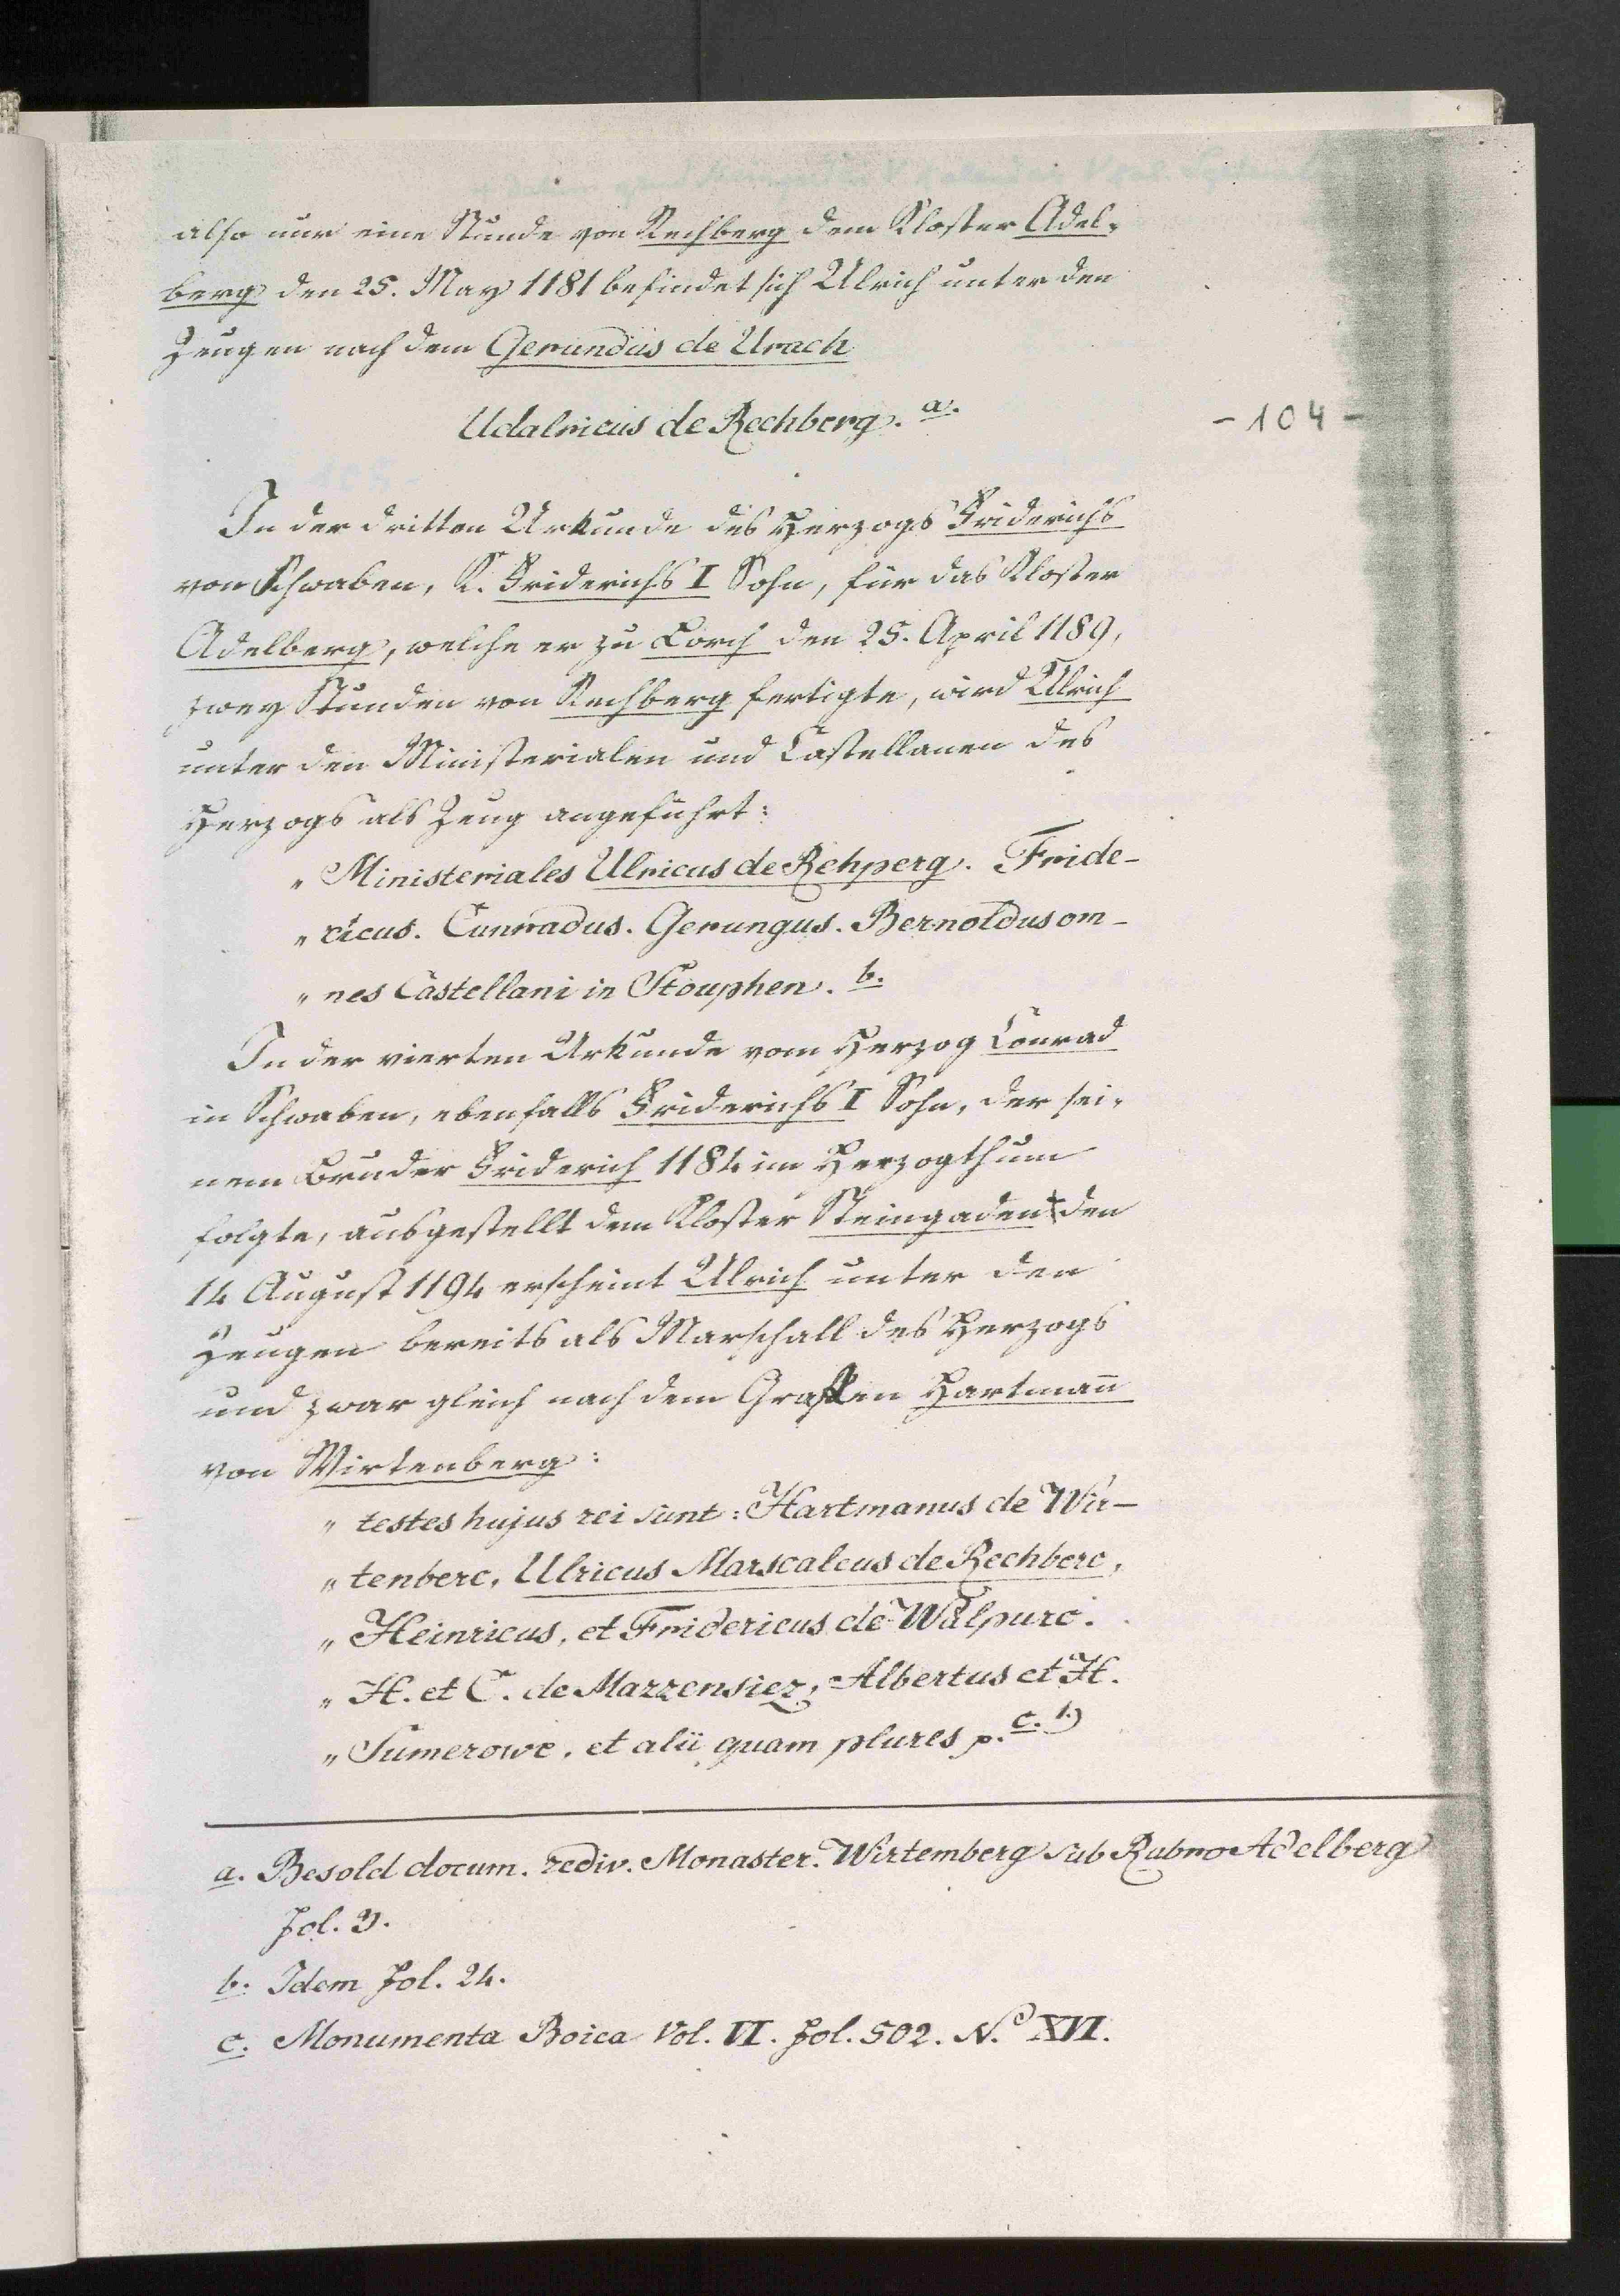 also nur eine Stunde von Rechberg dem Kloster Adel-
berg den 25. May 1181 befindet sich Ulrich unter den
Zeugen nach dem Gerundus de Urach
Udalricus de Rechberg. a.
- 104 -
In der dritten Urkunde des Herzogs Friderichs
von Schwaben, K. Friderichs I Sohn, für das Kloster
Adelberg, welche er zu Lorch den 25. April 1189,
zwey Stunden von Rechberg fertigte, wird Ulrich
unter den Ministerialen und Castellanen des
Herzogs als Zeug angeführt:
„ Ministeriales Ulricus de Rehperg. Fride-
„ ricus. Cunradus. Gerungus. Bernoldus om-
„ nes Castellani in Stouphen. b.
In der vierten Urkunde vom Herzog Conrad
in Schwaben, ebenfalls Friderichs I Sohn, der sei-
nem Bruder Friderich 1184 im Herzogthum
folgte, ausgestellt dem Kloster Steingaden den
14 August 1194 erscheint Ulrich unter den
Zeugen bereits als Marschall des Herzogs
und zwar gleich nach dem Grafen Hartmann
von Wirtenberg:
„ testes hujus rei sunt: Hartmanus de Wir-
„ tenberc, Ulricus Marscalcus de Rechberc,
„ Heinricus, et Fridericus de Walpurc.
„ H. et C. de Marzensiez, Albertus et H.
„ Sumerowe, et alii quam plures p. c. 1)
a. Besold docum. rediv. Monaster. Wirtemberg sub Rubro Adelberg
fol. 21.
b. Idem fol. 24.
c. Monumenta Boica Vol. VI. fol. 502. N.o XVI.